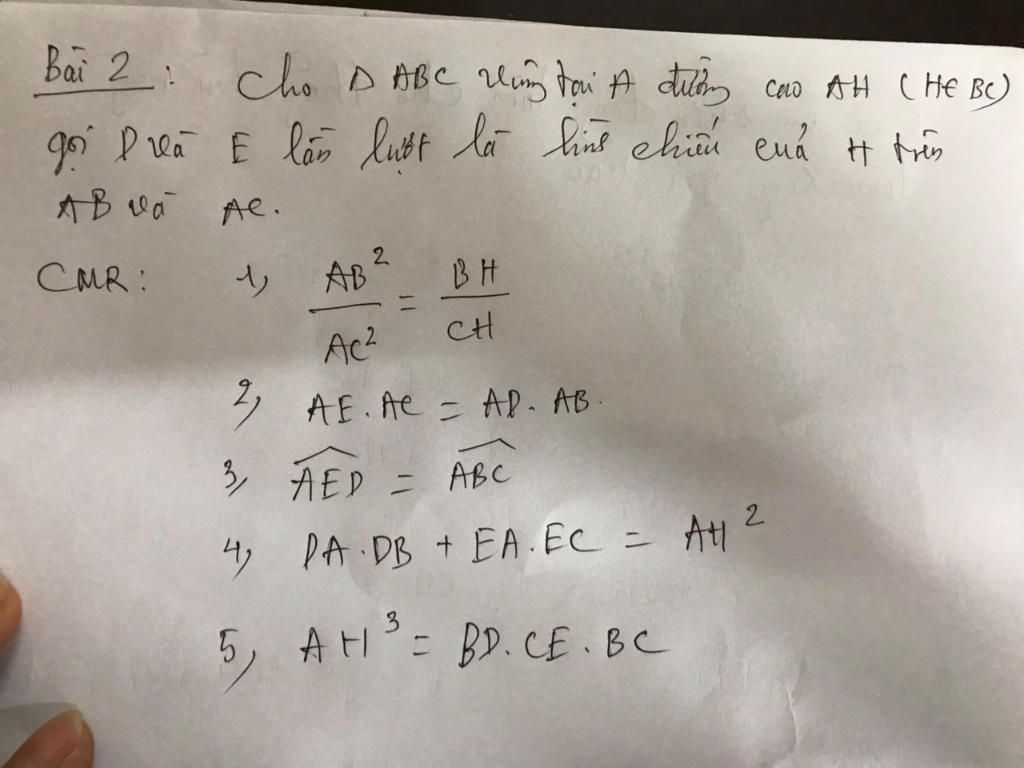 Bài 2 : Cho Δ ABC vuông tại A đường cao AH (H∈BC)
gọi D và E lần lượt là hình chiếu của H trên
AB và AC.
CMR: 1, AB²/AC² = BH/CH
2, AE.AC = AD.AB.
3, \widehat{AED} = \widehat{ABC}
4, DA.DB + EA.EC = AH²
5, AH³ = BD.CE.BC